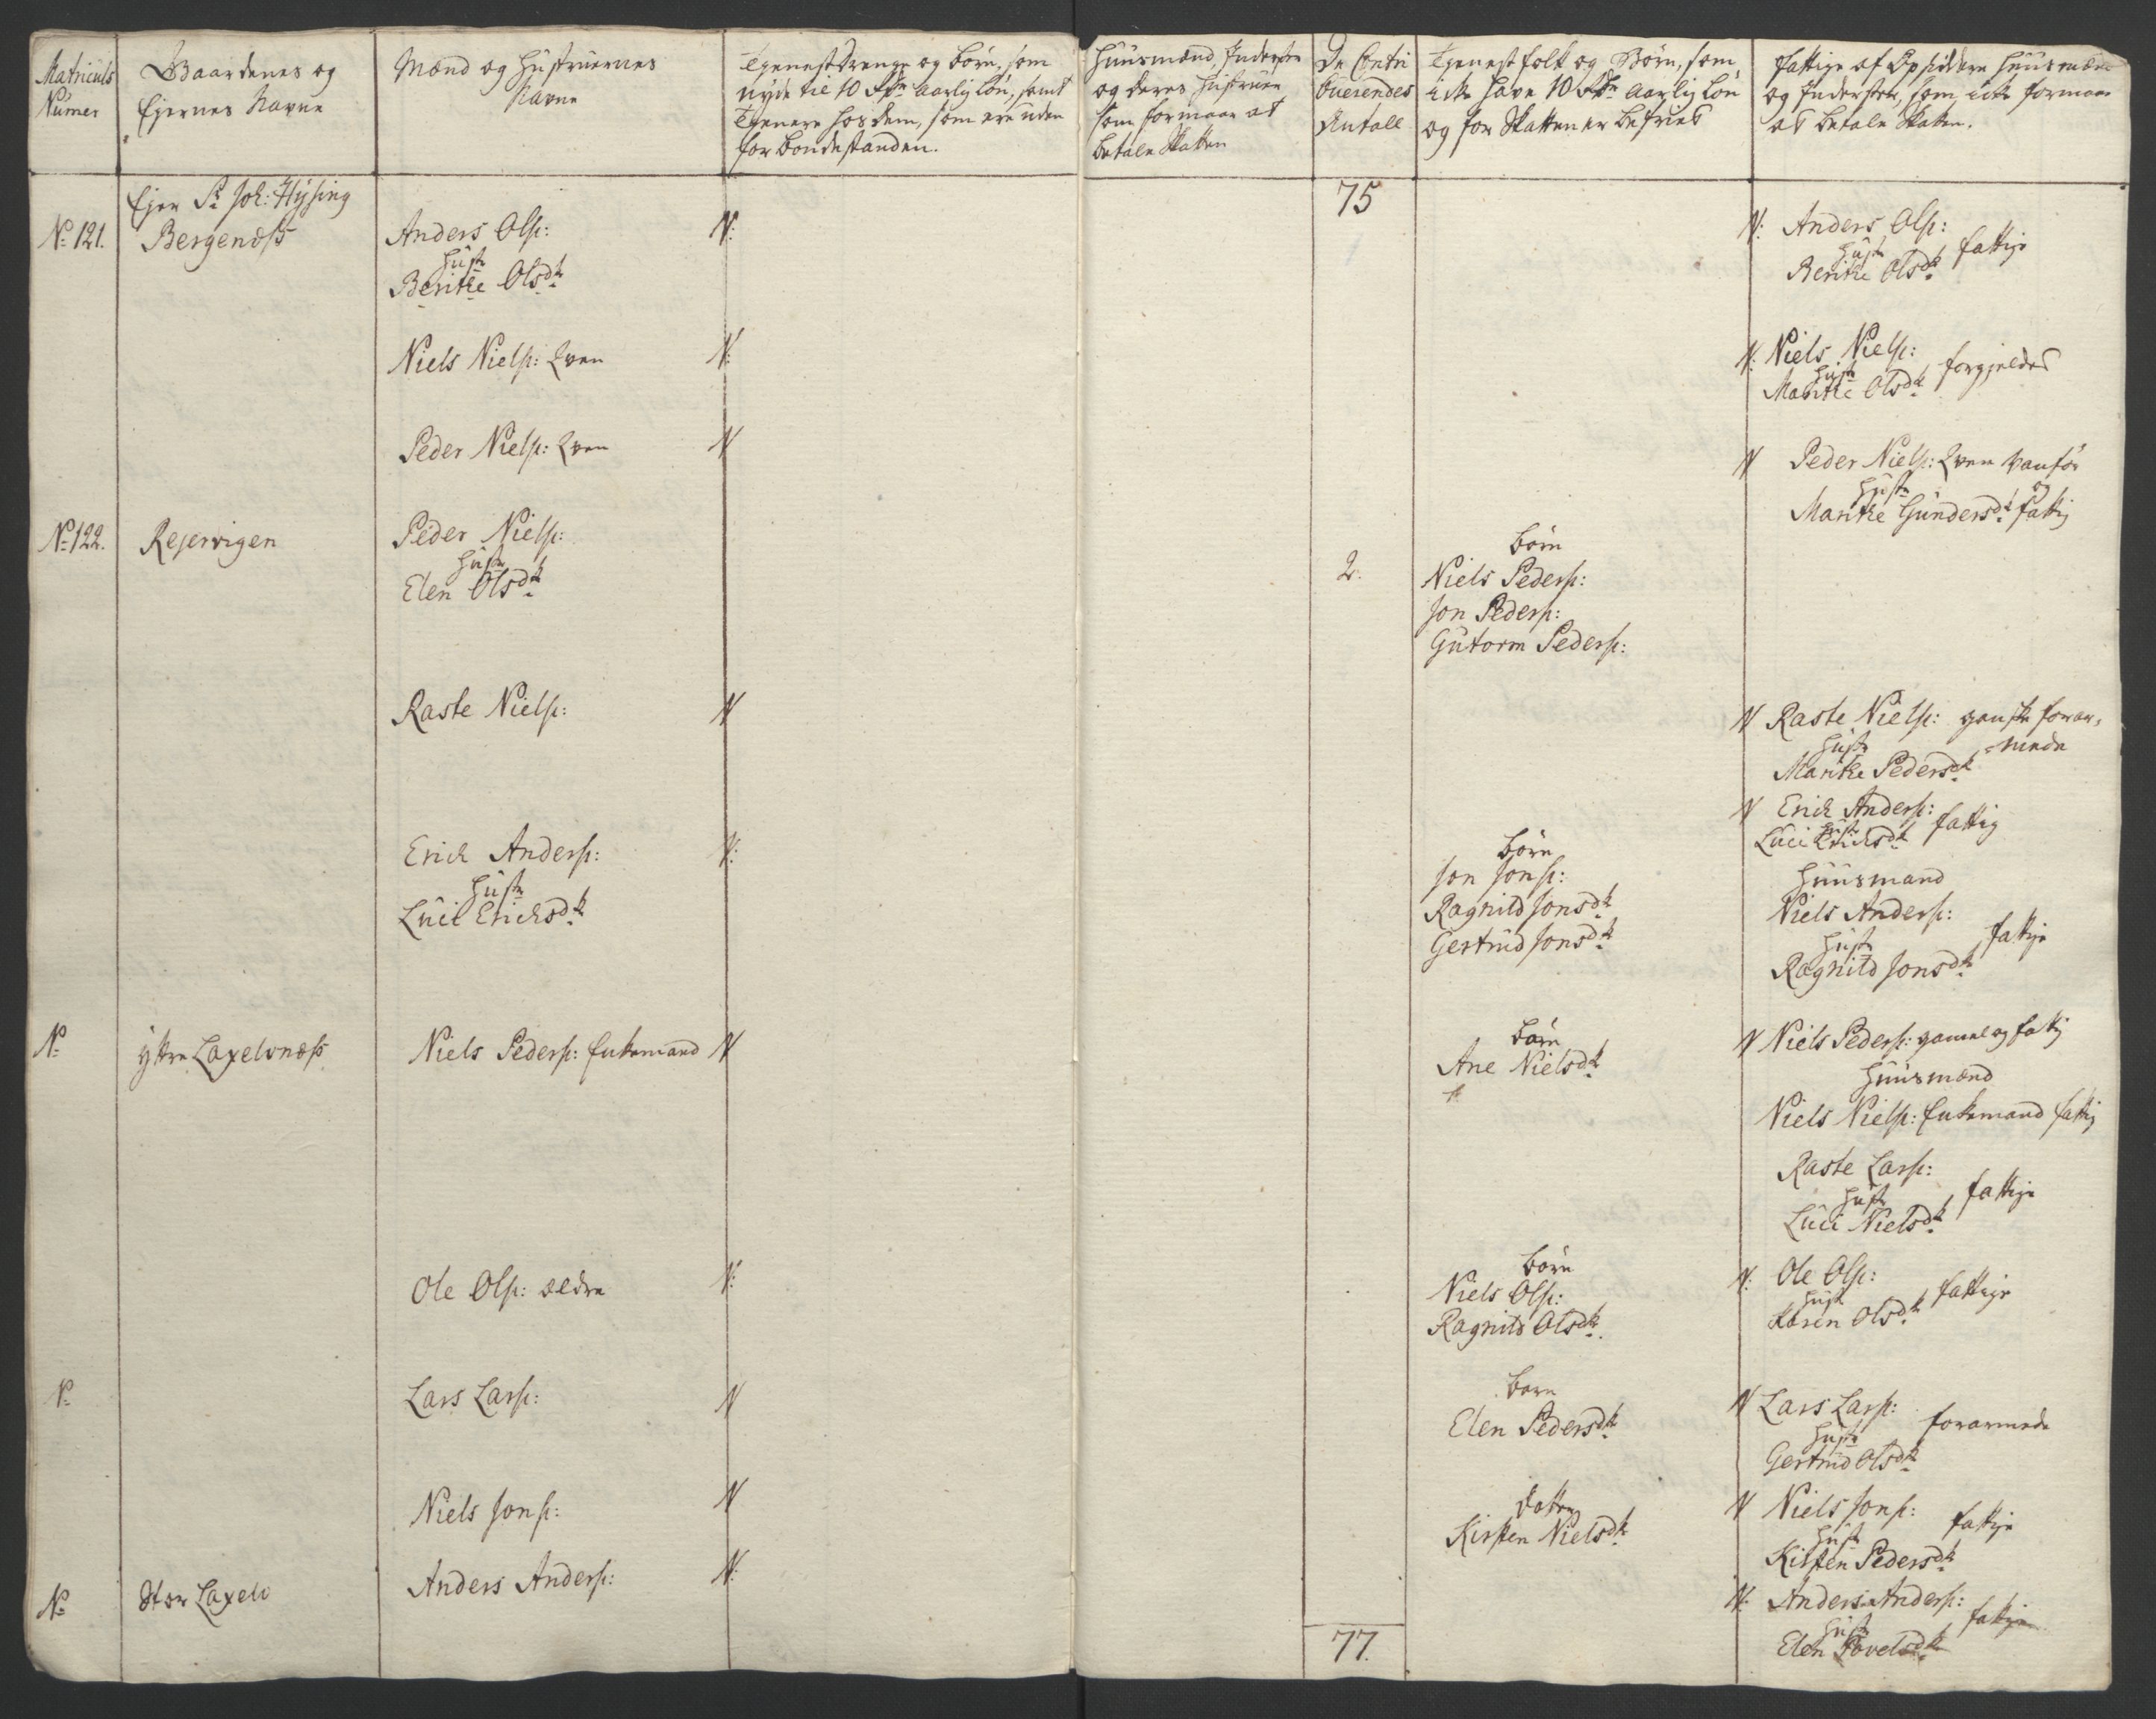 Matriculs
Numer
Gaardenes og
Ejernes Navne
Mænd og Hustruernes
Navne
Tjenestdrenge og Børn, som
nyde til 10 Rdr aarlig Løn, samt
Tjenere hos dem, som ere uden
for Bondestanden.
Huusmænd, Inderster
og deres Hustruer
som formaar at
betale Skatten
De Contri
buerendes
Antall
Tjenestfolk og Børn, som
icke have 10 Rdr aarlig Løn
og for Skatten er befriet
Fattige af Opsiddere Huusmænd
og Inderster, som icke formaar
at betale Skatten.
Ejer Sr Joh: Hysing
75
No 121.
Bergenæss
Anders Ols:
Hustr
Berithe Olsdtr
N:
N: Anders Ols:
Hustr
Beritte Olsdtr
fattige
Niels Niels: Qven
N:
N: Niels Niels:
Hustr
Maritte Olsdtr
forgjeldet
Peder Niels: Qven
N
N Peder Niels: Qven vanfør
Hustr
og
Maritte Gundersdtr fattig
No 122.
Rejervigen
Peder Niels:
Hustr
Elen Olsdtr
2.
Børn
Niels Peders:
Jon Peders:
Gutorm Peders:
Raste Niels:
N
N Raste Niels: ganske forar-
-mede
Hustr
Maritte Pedersdtr
Erich Anders:
Hustr
Luci Erichsdtr
N:
Børn
Jon Jons:
Ragnild Jonsdtr
Gertrud Jonsdtr
N Erich Anders:
Hustr
Luci Erichsdtr
fattig
Huusmand
Niels Anders:
Hustr
Ragnild Jonsdtr
fattige
No
yttre Laxelvnæss
Niels Peders: Enkemand
N
Børn
Ane Nielsdtr
N Niels Peders: gamel og fattig
Huusmænd
Niels Niels: Enkemand fattig
Raste Lars:
Hustr
Luci Nielsdtr
fattige
Ole Ols: ældre
N:
Børn
Niels Ols:
Ragnild Olsdtr.
N: Ole Ols:
Hustr
Karen Olsdtr
fattige
No
Lars Lars:
N
Børn
Elen Pedersdtr
N Lars Lars:
Hustr
Gertrud Olsdtr
forarmede
Niels Jons:
N
Datter
Kirsten Nielsdtr
N Niels Jons:
Hustr
Kirsten Pedersdtr
fattige
No
Stor Laxelv
Anders Anders:
N:
N: Anders Anders:
Hustr
Elen Povelsdtr
fattige
77.